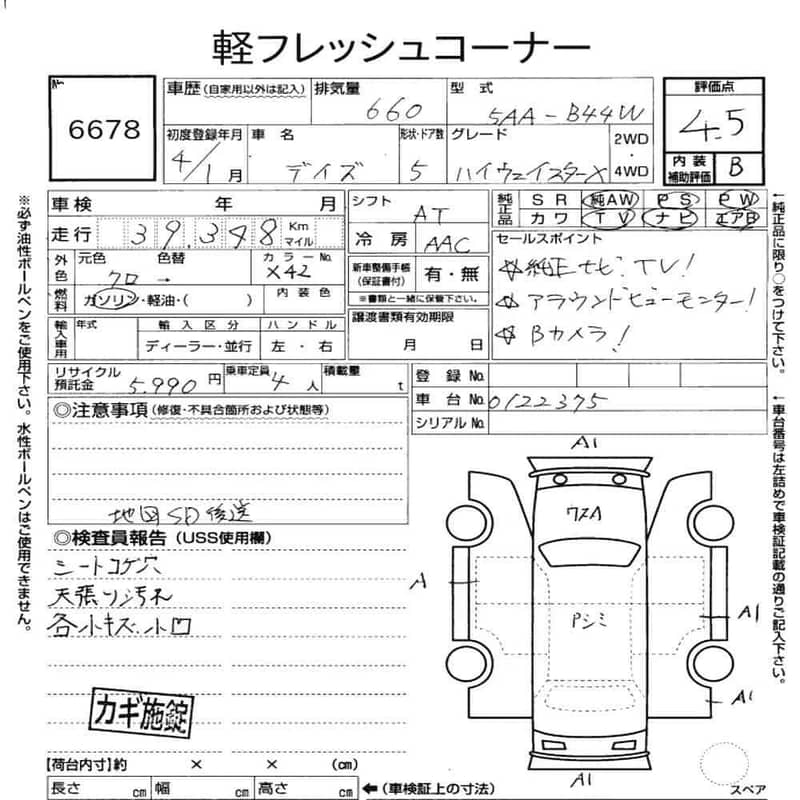 軽フレッシュコーナー
No. 6678
車歴 (自家用以外は記入) 排気量 660 型式 5AA-B44W
初度登録年月 4/1月 車名 デイズ 形状・ドア数 5 グレード ハイウェイスターX 2WD・4WD
評価点 4.5
内装補助評価 B
車検 年 月
走行 39,348 Km マイル
外色 元色 クロ → 色替 カラーNo. X42
燃料 ガソリン・軽油・( ) 内装色
輸入車用 年式 輸入区分 ディーラー・並行 ハンドル 左・右
シフト AT
冷房 AAC
新車整備手帳 (保証書付) 有・無
※書類と一緒に保管下さい。
譲渡書類有効期限
月 日
純正品 SR 純AW PS PW
カワ TV ナビ エアB
セールスポイント
☆純正ナビ・TV!
☆アラウンドビューモンター!
☆Bカメラ!
リサイクル預託金 5,990円 乗車定員 4人 積載量 t
登録No.
車台No. 0122375
シリアルNo.
◎注意事項 (修復・不具合箇所および状態等)
地図SD後送
◎検査員報告 (USS使用欄)
シートコゲ穴
天張り汚れ
各小キズ、小凹
カギ施錠
【荷台内寸】約 × × (cm)
長さ cm 幅 cm 高さ cm ← (車検証上の寸法)
A1
A
Pシミ
A1
A1
A1
スペア
※必ず油性ボールペンをご使用下さい。水性ボールペンはご使用できません。
←純正品に限り○をつけて下さい。
←車台番号は左詰めで車検証記載の通りご記入下さい。